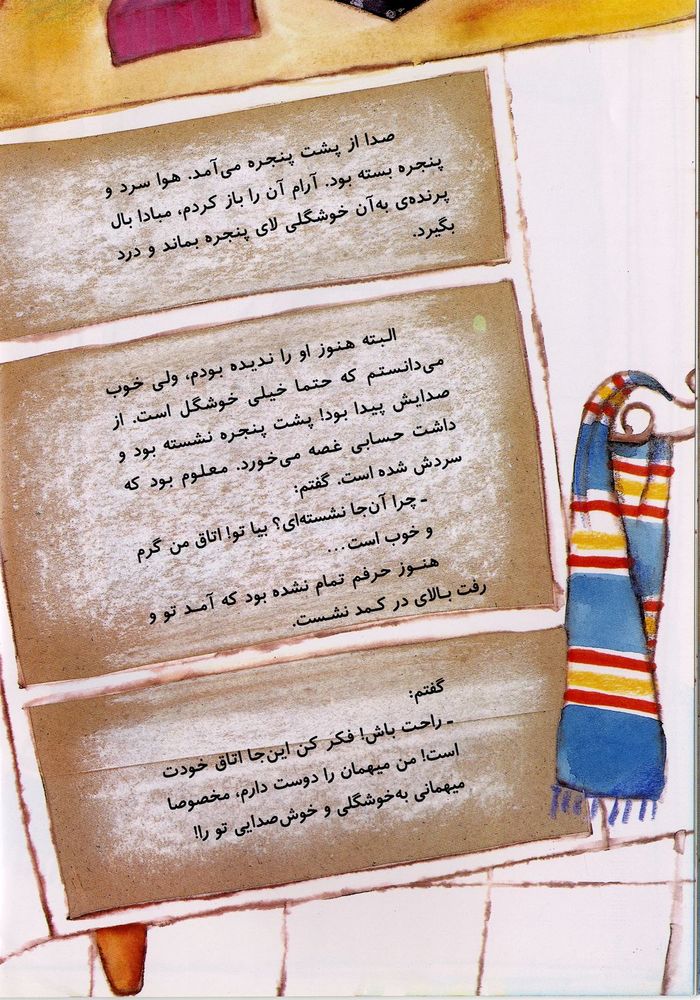 صدا از پشت پنجره می‌آمد. هوا سرد و
پنجره بسته بود. آرام آن را باز کردم، مبادا بال
پرنده‌ی به‌آن خوشگلی لای پنجره بماند و درد
بگیرد.
البته هنوز او را ندیده بودم، ولی خوب
می‌دانستم که حتما خیلی خوشگل است. از
صدایش پیدا بود! پشت پنجره نشسته بود و
داشت حسابی غصه می‌خورد. معلوم بود که
سردش شده است. گفتم:
ـ چرا آن‌جا نشسته‌ای؟ بیا تو! اتاق من گرم
و خوب است...
هنوز حرفم تمام نشده بود که آمد تو و
رفت بالای در کمد نشست.
گفتم:
ـ راحت باش! فکر کن این‌جا اتاق خودت
است! من میهمان را دوست دارم، مخصوصا
میهمانی به‌خوشگلی و خوش‌صدایی تو را!